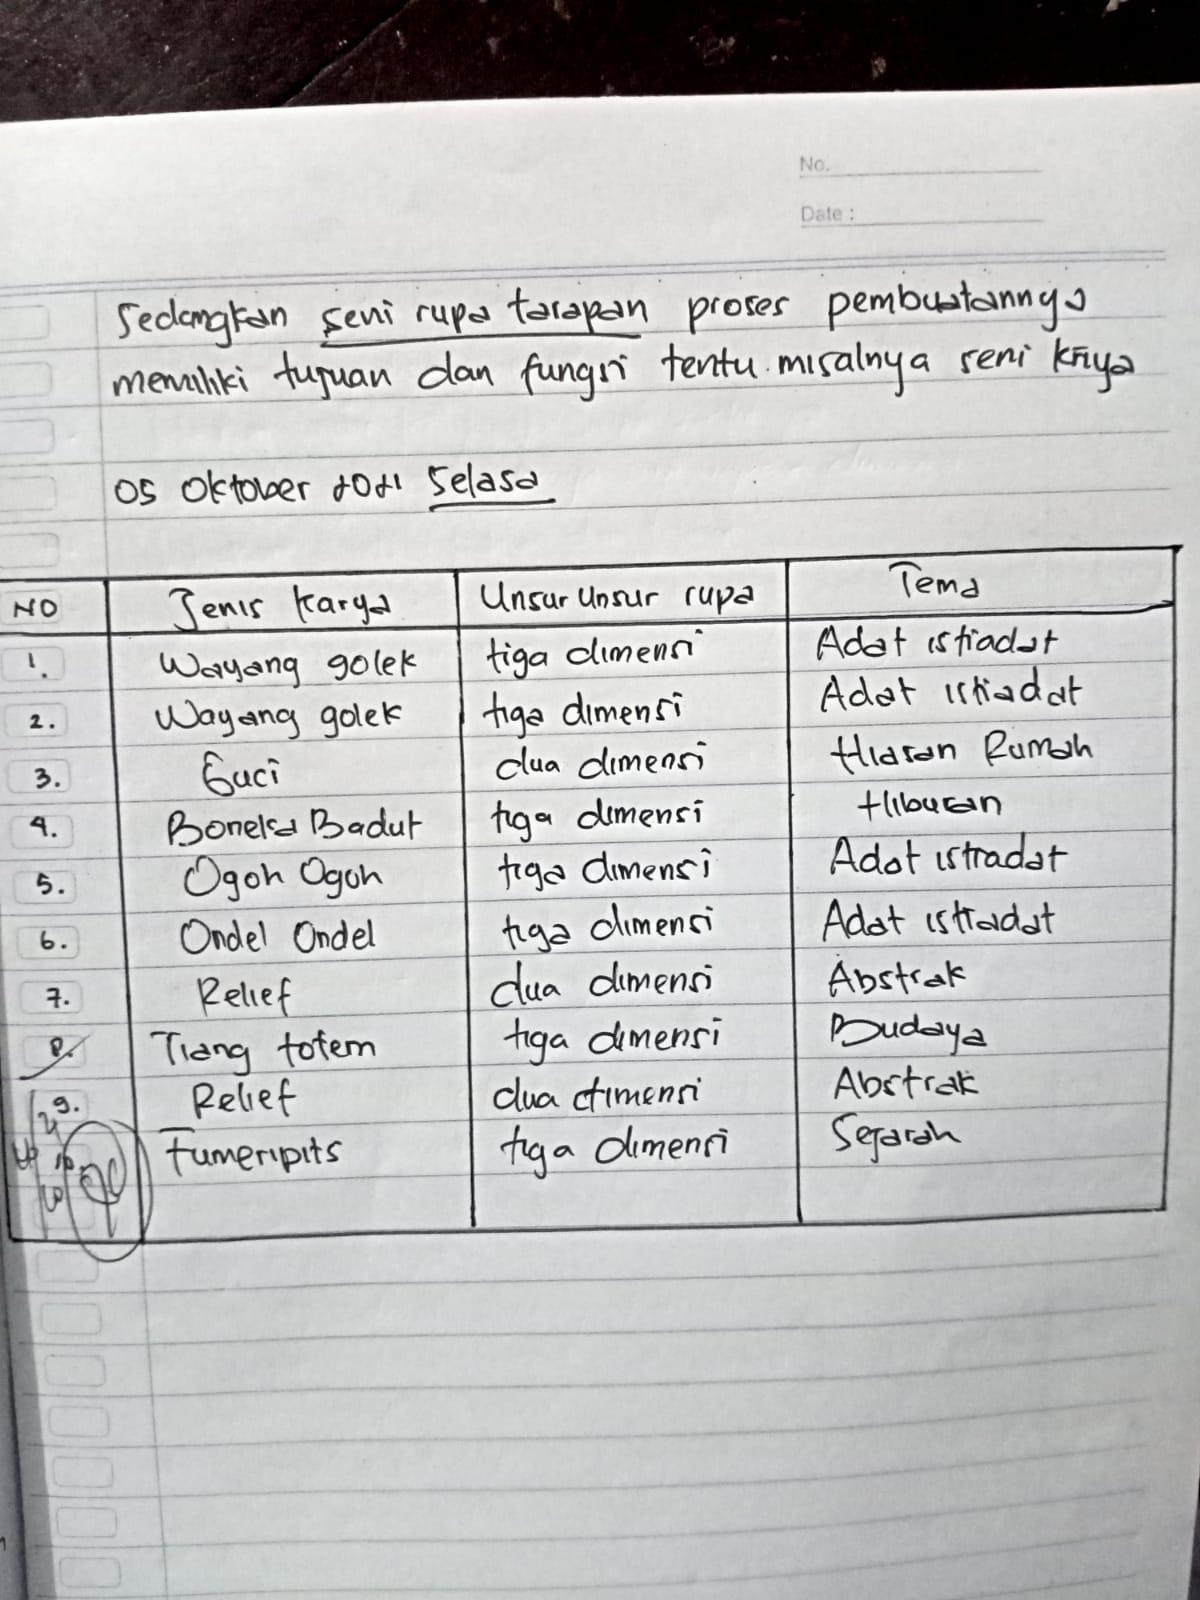 No.
Date :
Sedangkan seni rupa tarapan proses pembuatannya
memiliki tujuan dan fungsi tentu misalnya seni kriya
05 Oktober 2021 Selasa
NO Jenis Karya Unsur Unsur rupa Tema
1. Wayang golek tiga dimensi Adat istiadat
2. Wayang golek tiga dimensi Adat istiadat
3. Guci dua dimensi Hiasan Rumah
4. Boneka Badut tiga dimensi Hiburan
5. Ogoh Ogoh tiga dimensi Adat istiadat
6. Ondel Ondel tiga dimensi Adat istiadat
7. Relief dua dimensi Abstrak
8. Tiang totem tiga dimensi Budaya
9. Relief dua dimensi Abstrak
Fumeripits tiga dimensi Sejarah